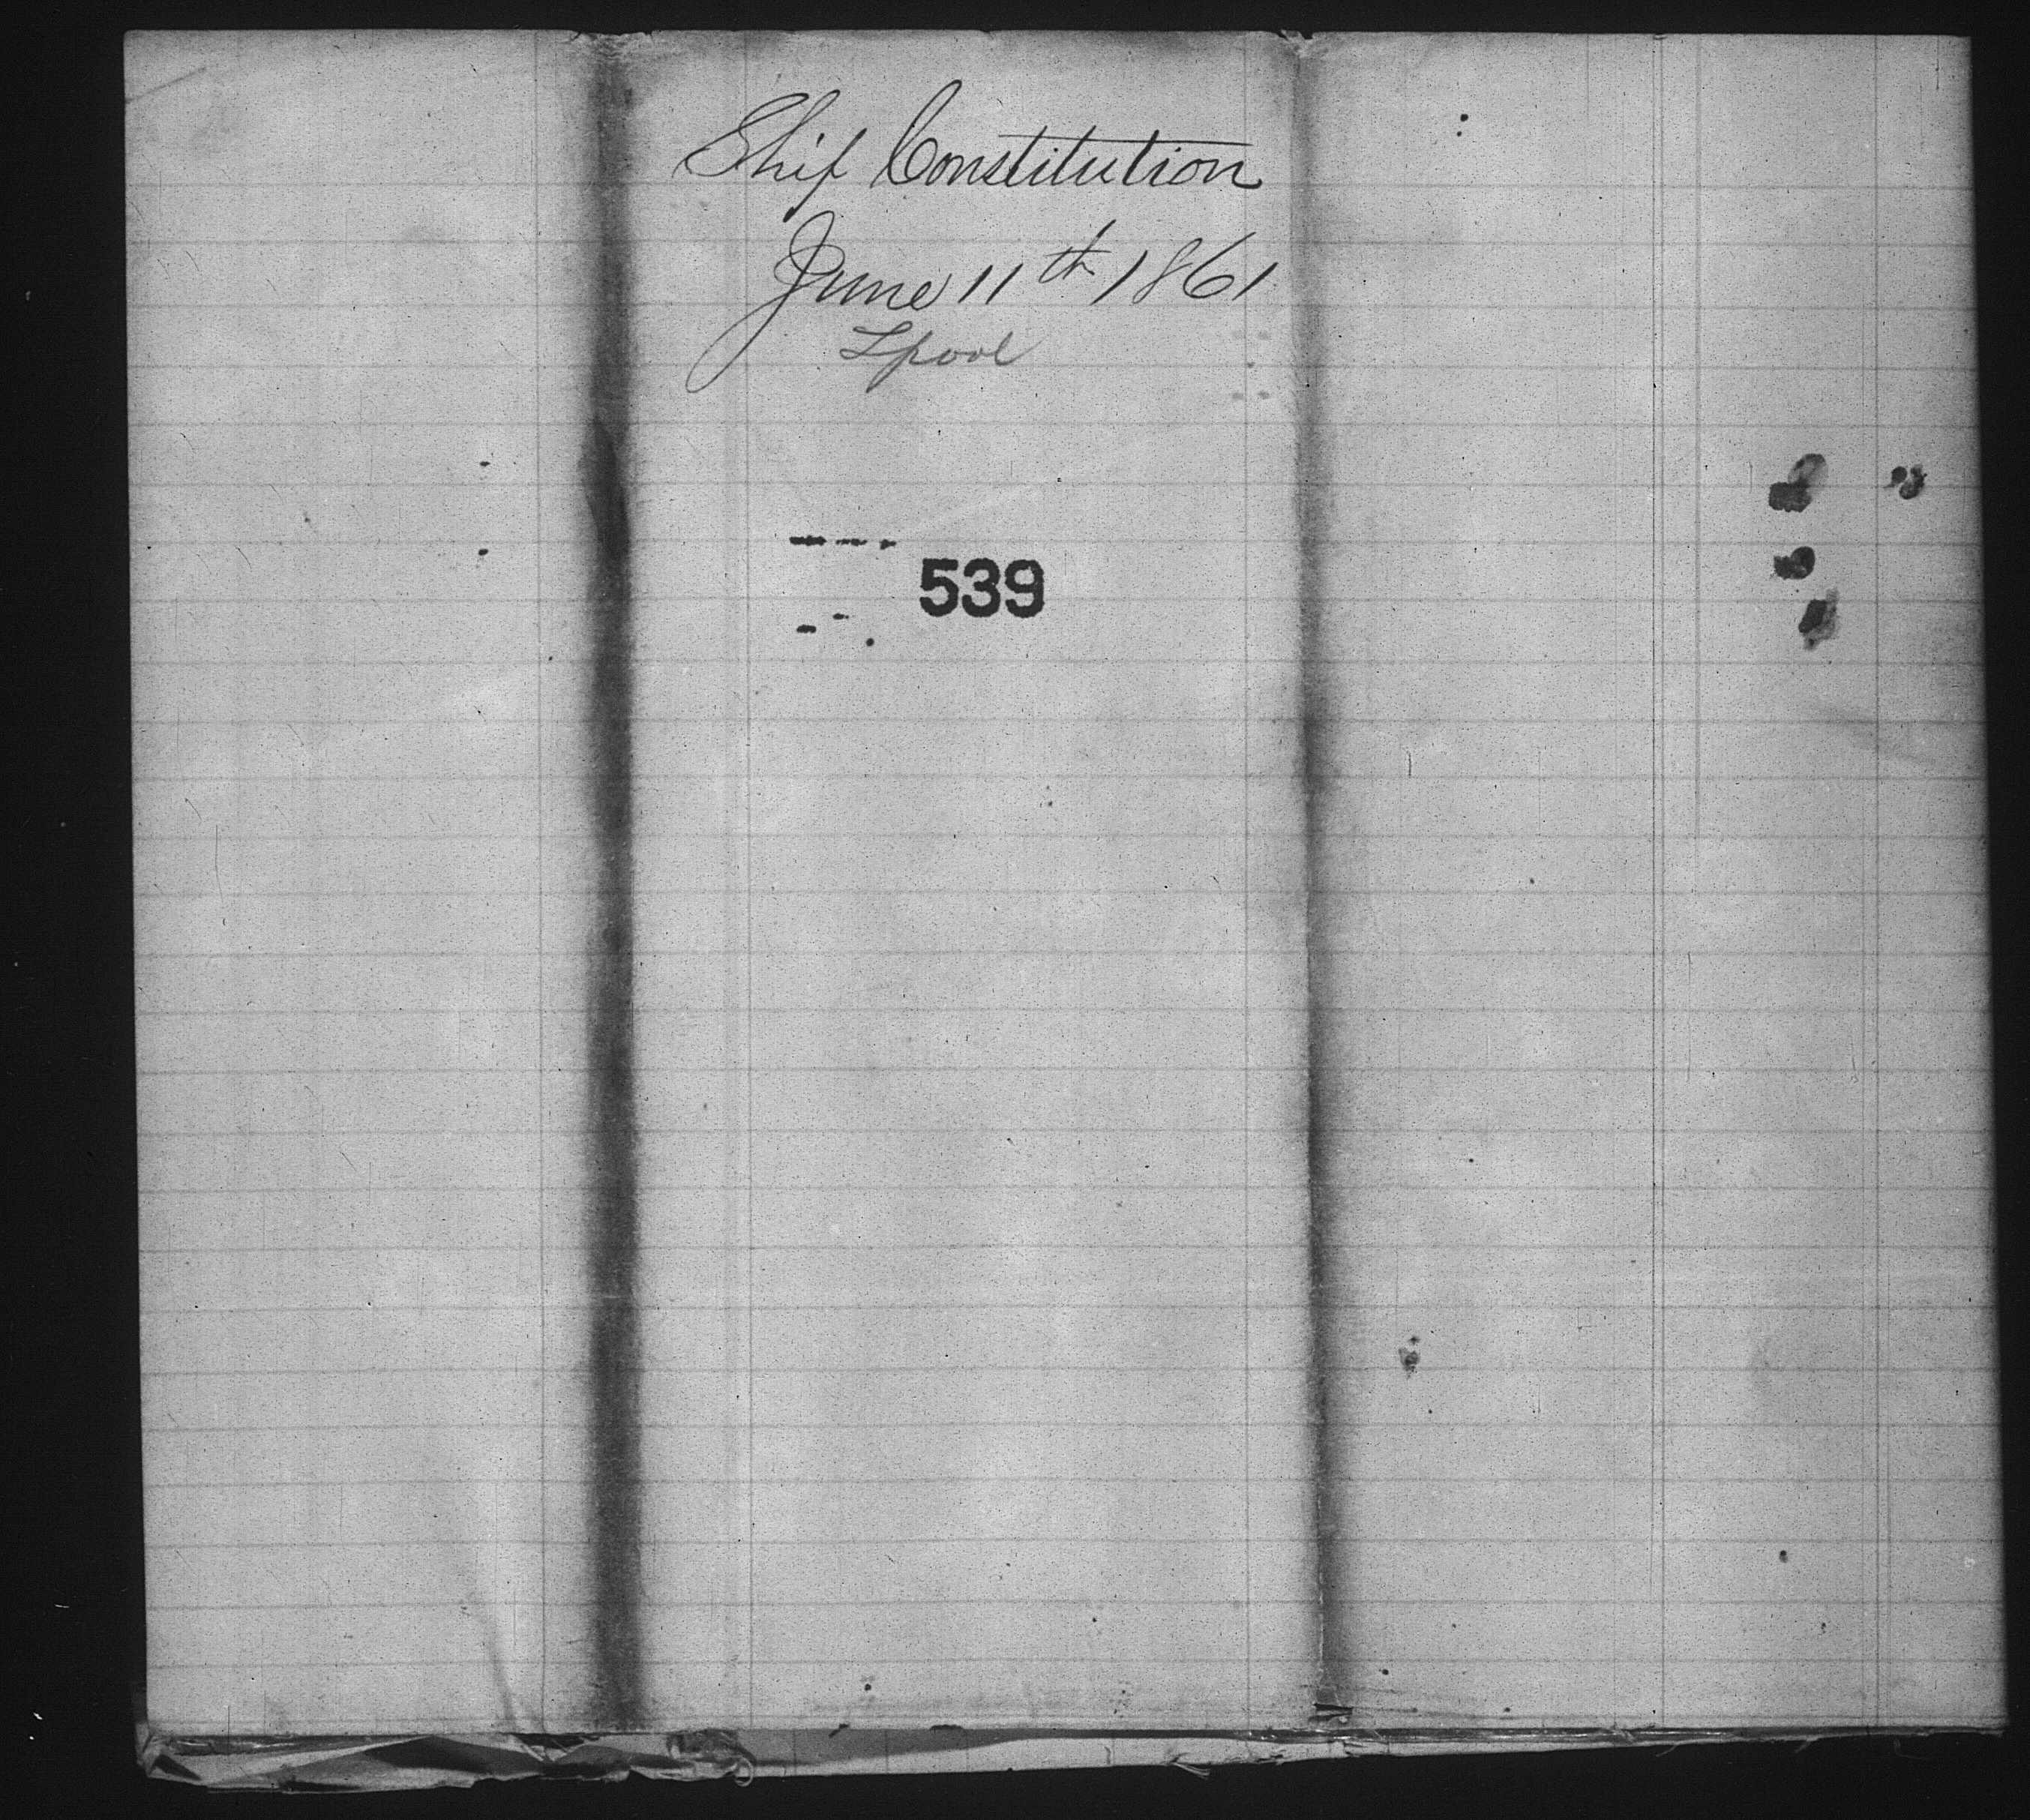 Ship Constitution
June 11th 1861
Lpool
539